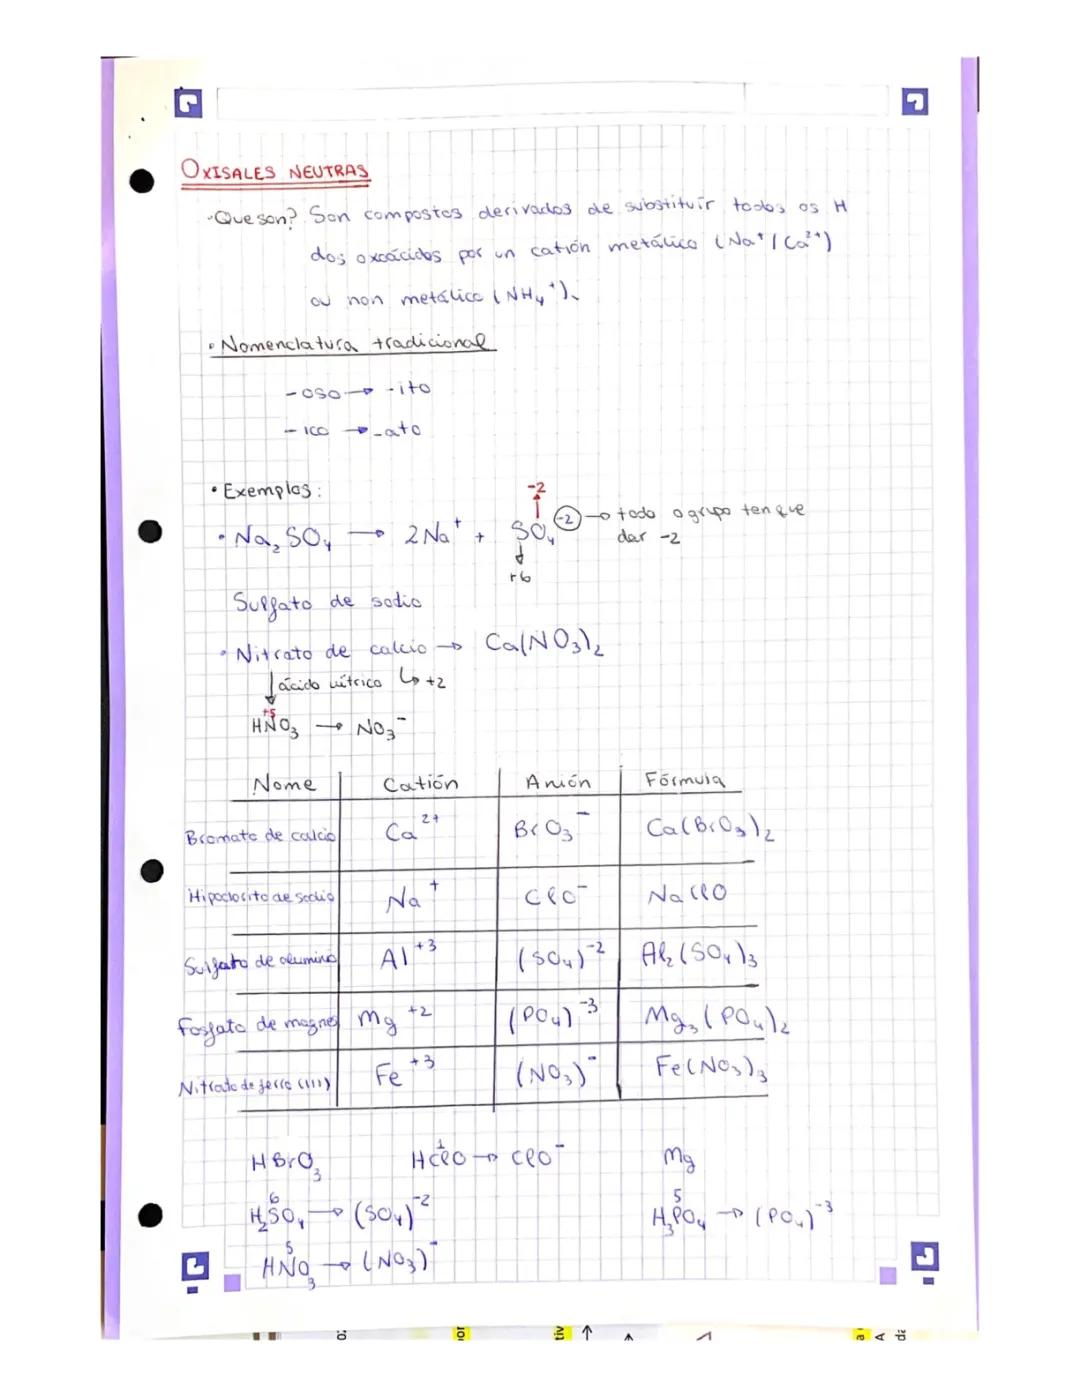 OXISALES NEUTRAS
· Que son? Son compostos derivados de substituír todos os H
dos oxoácidos por un catión metálico (Na⁺ / Ca²⁺)
ou non metálico (NH₄⁺).
· Nomenclatura tradicional
-oso → -ito
-ico → -ato
· Exemplos:
-2
· Na₂SO₄ → 2Na⁺ + SO₄ (-2) → todo o grupo ten que
dar -2
+6
Sulfato de sodio
· Nitrato de calcio → Ca(NO₃)₂
ácido nítrico ↳ +2
+5
HNO₃ → NO₃⁻
Nome Catión Anión Fórmula
Bromato de calcio Ca²⁺ BrO₃⁻ Ca(BrO₃)₂
Hipoclorito de sodio Na⁺ ClO⁻ NaClO
Sulfato de aluminio Al⁺³ (SO₄)⁻² Al₂(SO₄)₃
Fosfato de magnes Mg⁺² (PO₄)⁻³ Mg₃(PO₄)₂
Nitrato de ferro (III) Fe⁺³ (NO₃)⁻ Fe(NO₃)₃
1
HBrO₃ HClO → ClO⁻ Mg
6 5
H₂SO₄ → (SO₄)⁻² H₃PO₄ → (PO₄)⁻³
5
HNO₃ → (NO₃)⁻